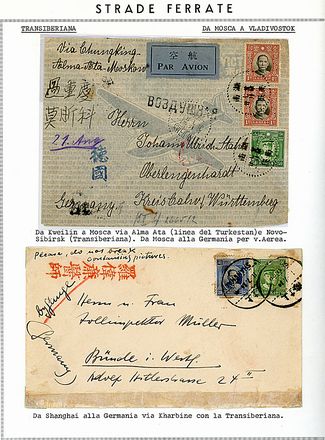 STRADE FERRATE
TRANSIBERIANA
DA MOSCA A VLADIVOSTOK
Via Chungking-
Alma-Ata-Moskow
空 航
PAR AVION
重慶
莫斯科
ВОЗДУШНАЯ
29. Aug.
Herrn
Johann Ulrich Stahl
德國
Oberlengenhardt
Germany
Kreis Calw/Württemberg
Da Kweilin a Mosca via Alma Ata (linea del Turkestan)e Novo-
Sibirsk (Transiberiana). Da Mosca alla Germania per v.Aerea.
Please, do not break
containing pictures.
Herrn u. Frau
Zollinspektor Müller
Bünde i. Westf.
Germany
Adolf Hitlerstrasse 24
Da Shanghai alla Germania via Kharbine con la Transiberiana.